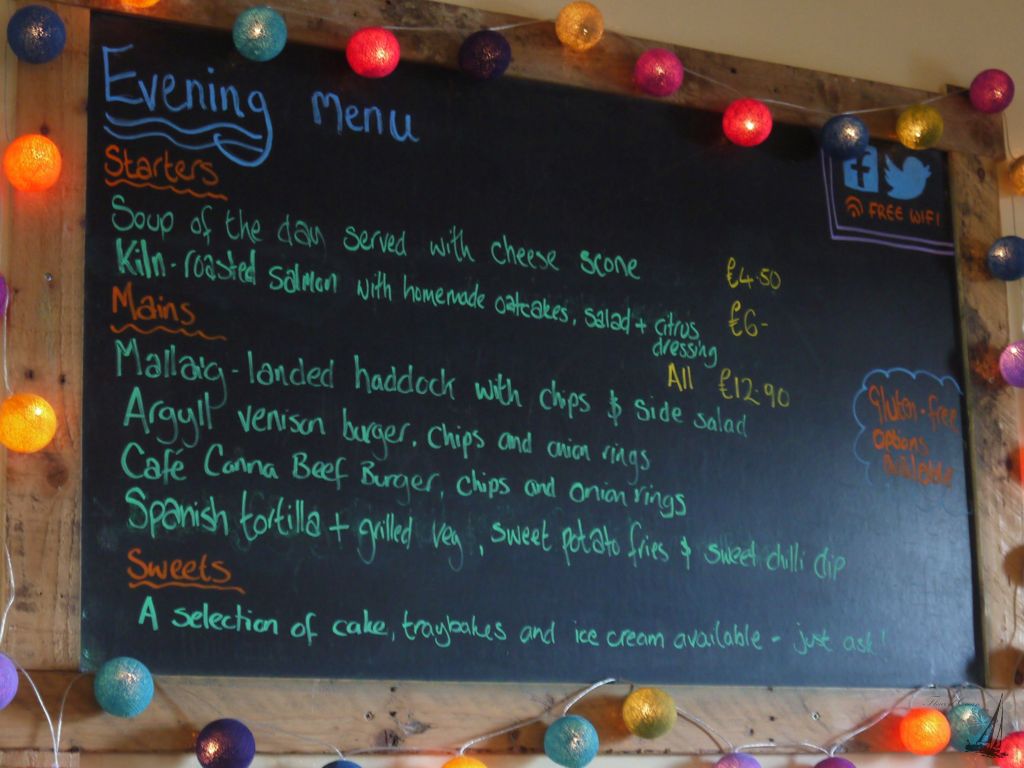 Evening Menu
FREE WIFI
Starters
Soup of the day served with cheese scone £4.50
Kiln-roasted salmon with homemade oatcakes, salad + citrus dressing £6-
Mains
All £12.90
Mallaig-landed haddock with chips & side salad
Argyll venison burger, chips and onion rings
Café Canna Beef Burger, chips and onion rings
Spanish tortilla + grilled veg, sweet potato fries & sweet chilli dip
Gluten-free
options
available
Sweets
A selection of cake, traybakes and ice cream available - just ask!